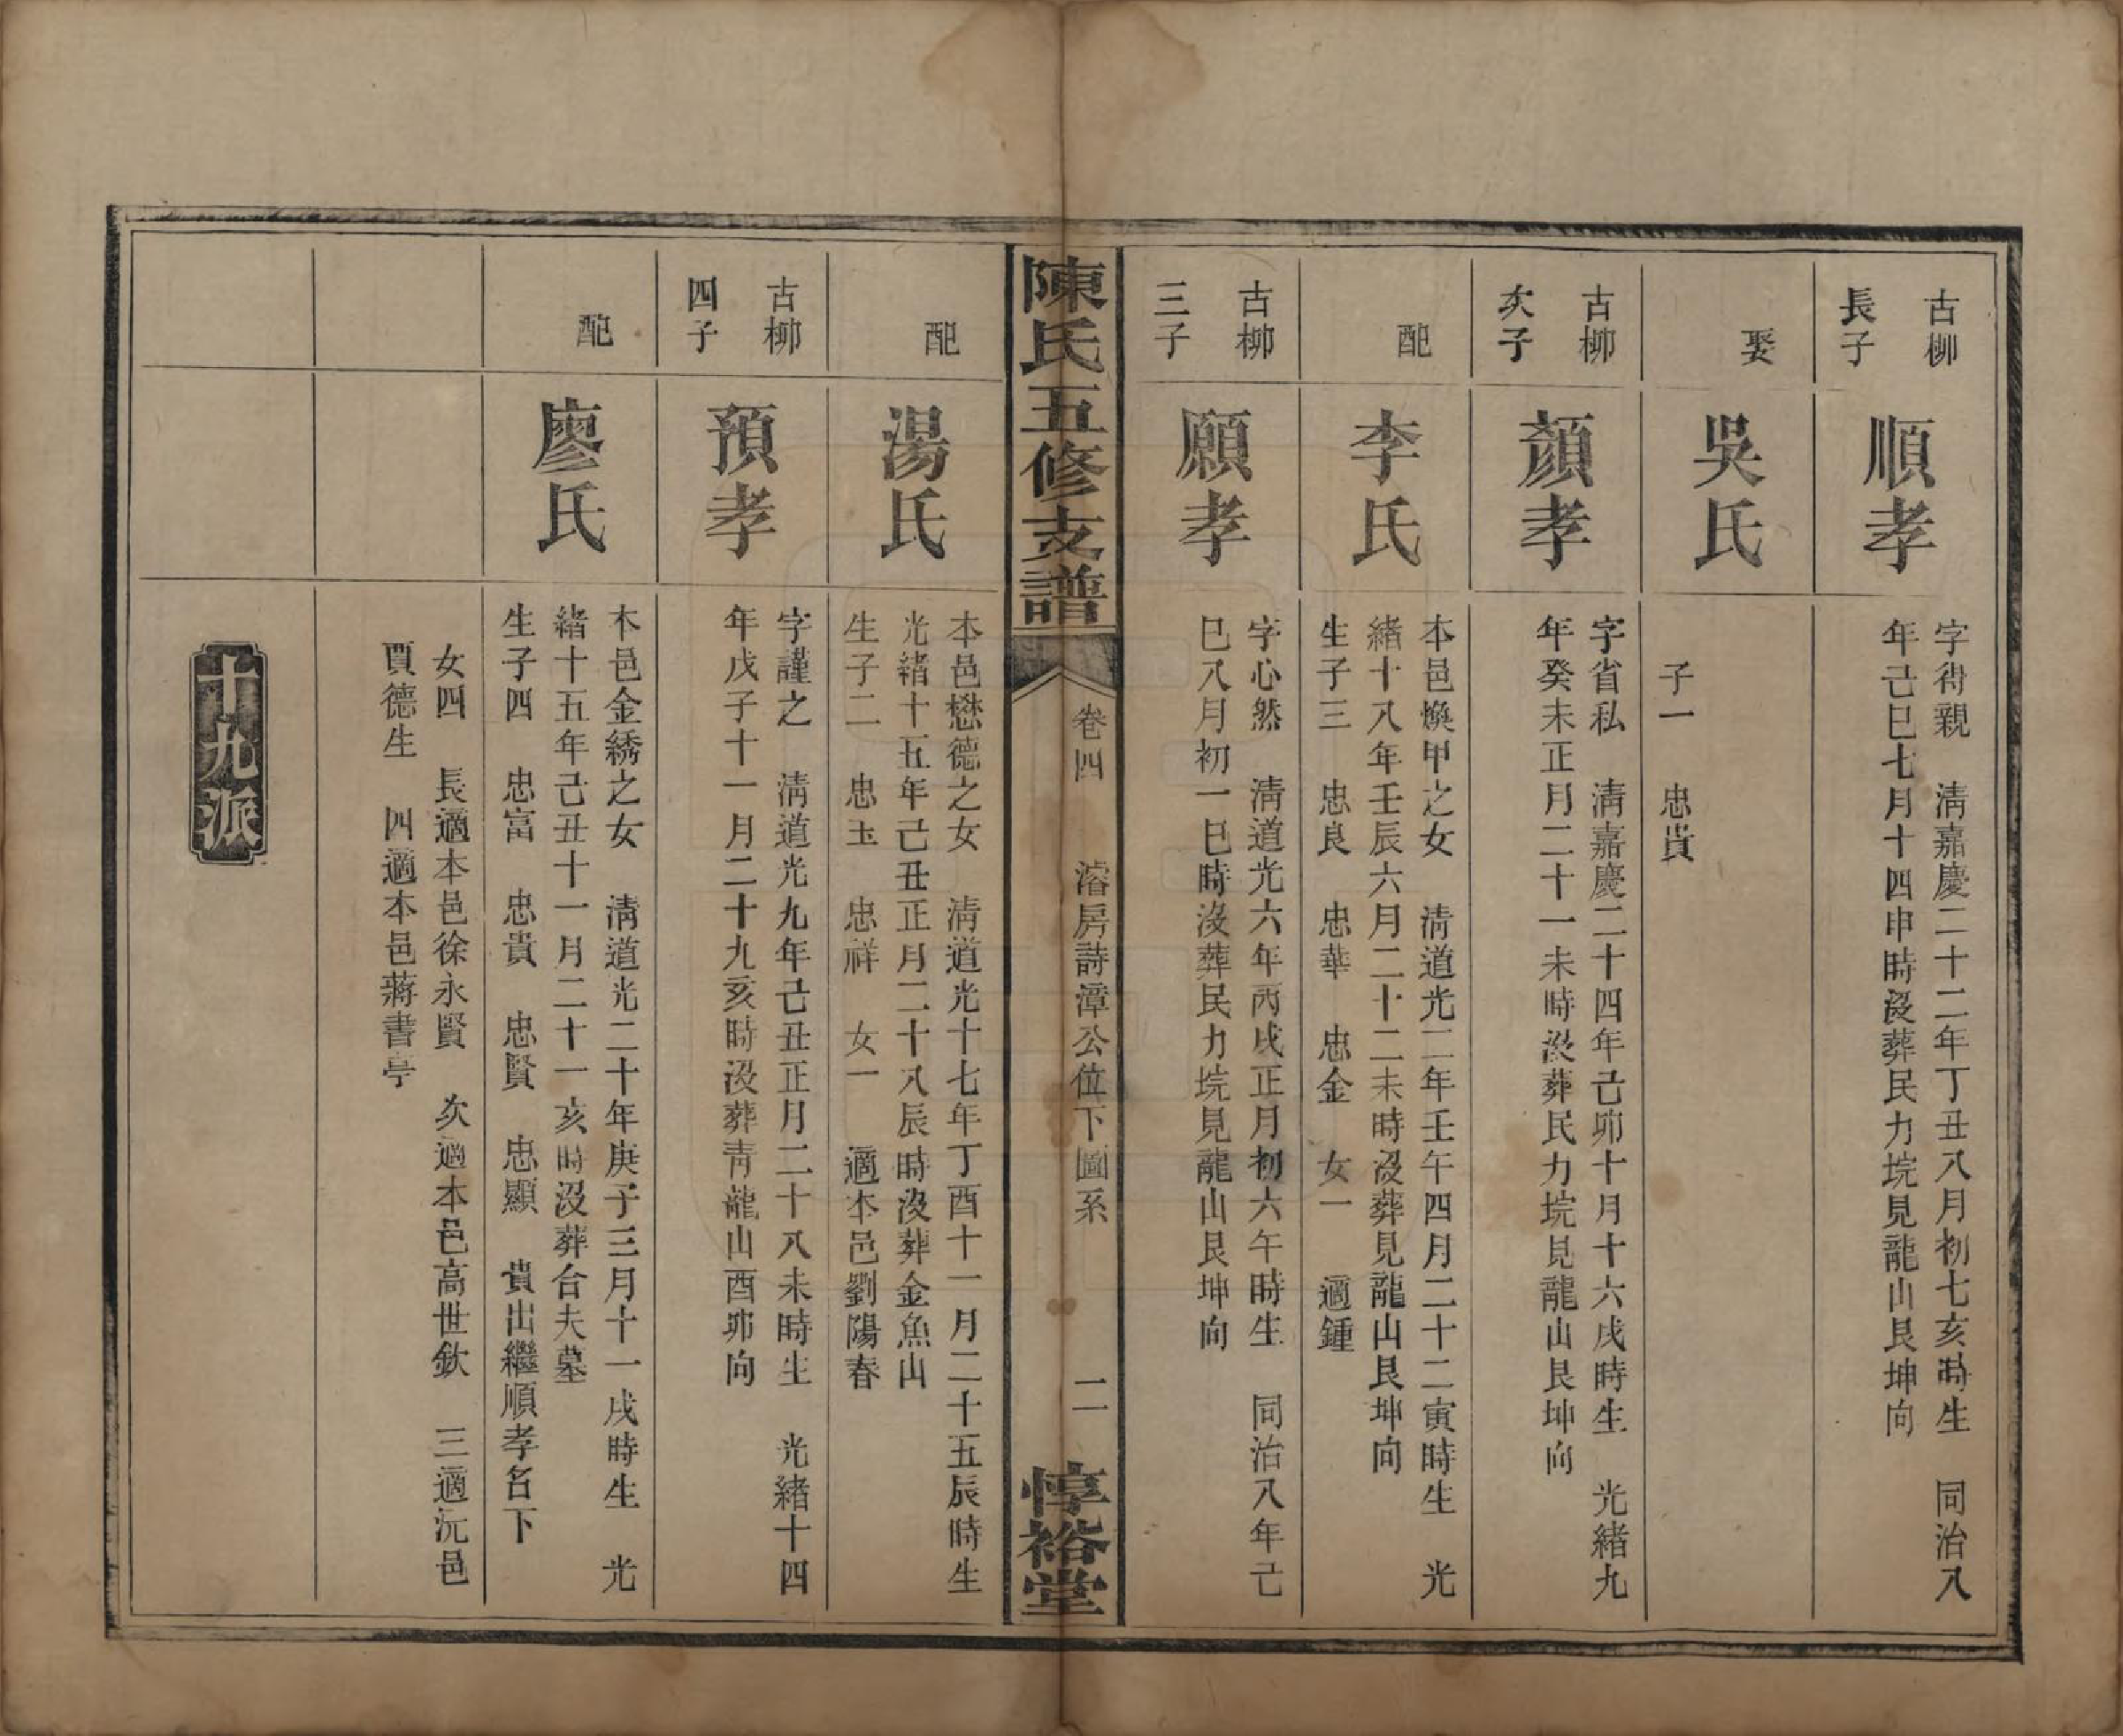 古柳
長子
順孝
字得親　清嘉慶二十二年丁丑八月初七亥時生　同治八
年己巳七月十四申時沒葬民力垸見龍山艮坤向
娶
吳氏
子一　忠貴
古柳
次子
顏孝
字省私　清嘉慶二十四年己卯十月十六戌時生　光緒九
年癸未正月二十一未時沒葬民力垸見龍山艮坤向
配
李氏
本邑煥甲之女　清道光二年壬午四月二十二寅時生　光
緒十八年壬辰六月二十二未時沒葬見龍山艮坤向
生子三　忠良　忠華　忠金　女一　適鍾
古柳
三子
願孝
字心然　清道光六年丙戌正月初六午時生　同治八年己
巳八月初一巳時沒葬民力垸見龍山艮坤向
陳氏五修支譜
卷四　濬房詩漳公位下圖系
二
惇裕堂
配
湯氏
本邑懋德之女　清道光十七年丁酉十一月二十五辰時生
光緒十五年己丑正月二十八辰時沒葬金魚山
生子二　忠玉　忠祥　女一　適本邑劉陽春
古柳
四子
預孝
字謹之　清道光九年己丑正月二十八未時生　光緒十四
年戊子十一月二十九亥時沒葬青龍山酉卯向
配
廖氏
本邑金綉之女　清道光二十年庚子三月十一戌時生　光
緒十五年己丑十一月二十一亥時沒葬合夫墓
生子四　忠富　忠貴　忠賢　忠顯　貴出繼順孝名下
女四　長適本邑徐永賢　次適本邑高世欽　三適沅邑
賈德生　四適本邑蔣書亭
十九派